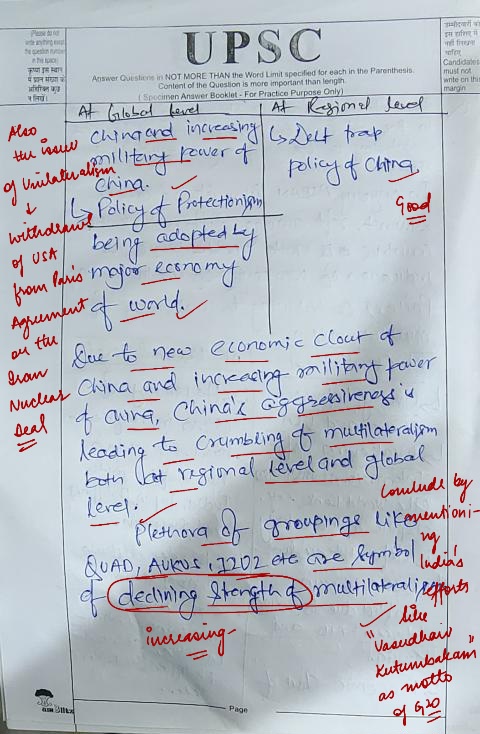 (Please do not
write anything except
the question number
in this space)
कृपया इस स्थान
में प्रश्न संख्या के
अतिरिक्त कुछ
न लिखें।
UPSC
Answer Questions in NOT MORE THAN the Word Limit specified for each in the Parenthesis.
Content of the Question is more important than length.
( Specimen Answer Booklet - For Practice Purpose Only)
उम्मीदवारों को
इस हाशिए में
नहीं लिखना
चाहिए
Candidates
must not
write on this
margin
At Global Level
At Regional level
China and increasing
military power of
China.
↳ Policy of Protectionism
being adopted by
major economy
of world.
↳ Debt trap
policy of China
Good
Also
the issue
of Unilateralism
↓
Withdrawal
of USA
from Paris
Agreement
or the
Iran
Nuclear
Deal
Due to new economic clout of
China and increasing military power
of China, China's aggressiveness is
leading to crumbling of multilateralism
both at regional level and global
level.
Plethora of groupings like
QUAD, AUKUS, I2U2 etc are symbol
of declining strength of multilateralism
increasing
Conclude by
mentioni-
ng
India's
efforts
like
"Vasudhaiv
Kutumbakam"
as motto
of G20
Page